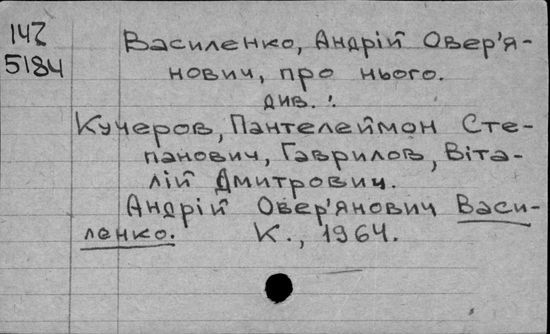 147
5184
Василенко, Андрій Овер'я-
нович, про нього.
див.:
Кучеров, Пантелеймон Сте-
панович, Гаврилов, Віта-
лій Дмитрович.
Андрій Овер'янович Васи-
ленко. К., 1964.